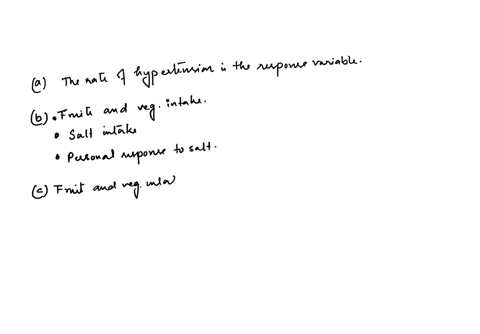 (a) The rate of hypertension is the response variable.
(b) • Fruits and veg. intake.
• Salt intake
• Personal response to salt.
(c) Fruit and veg.